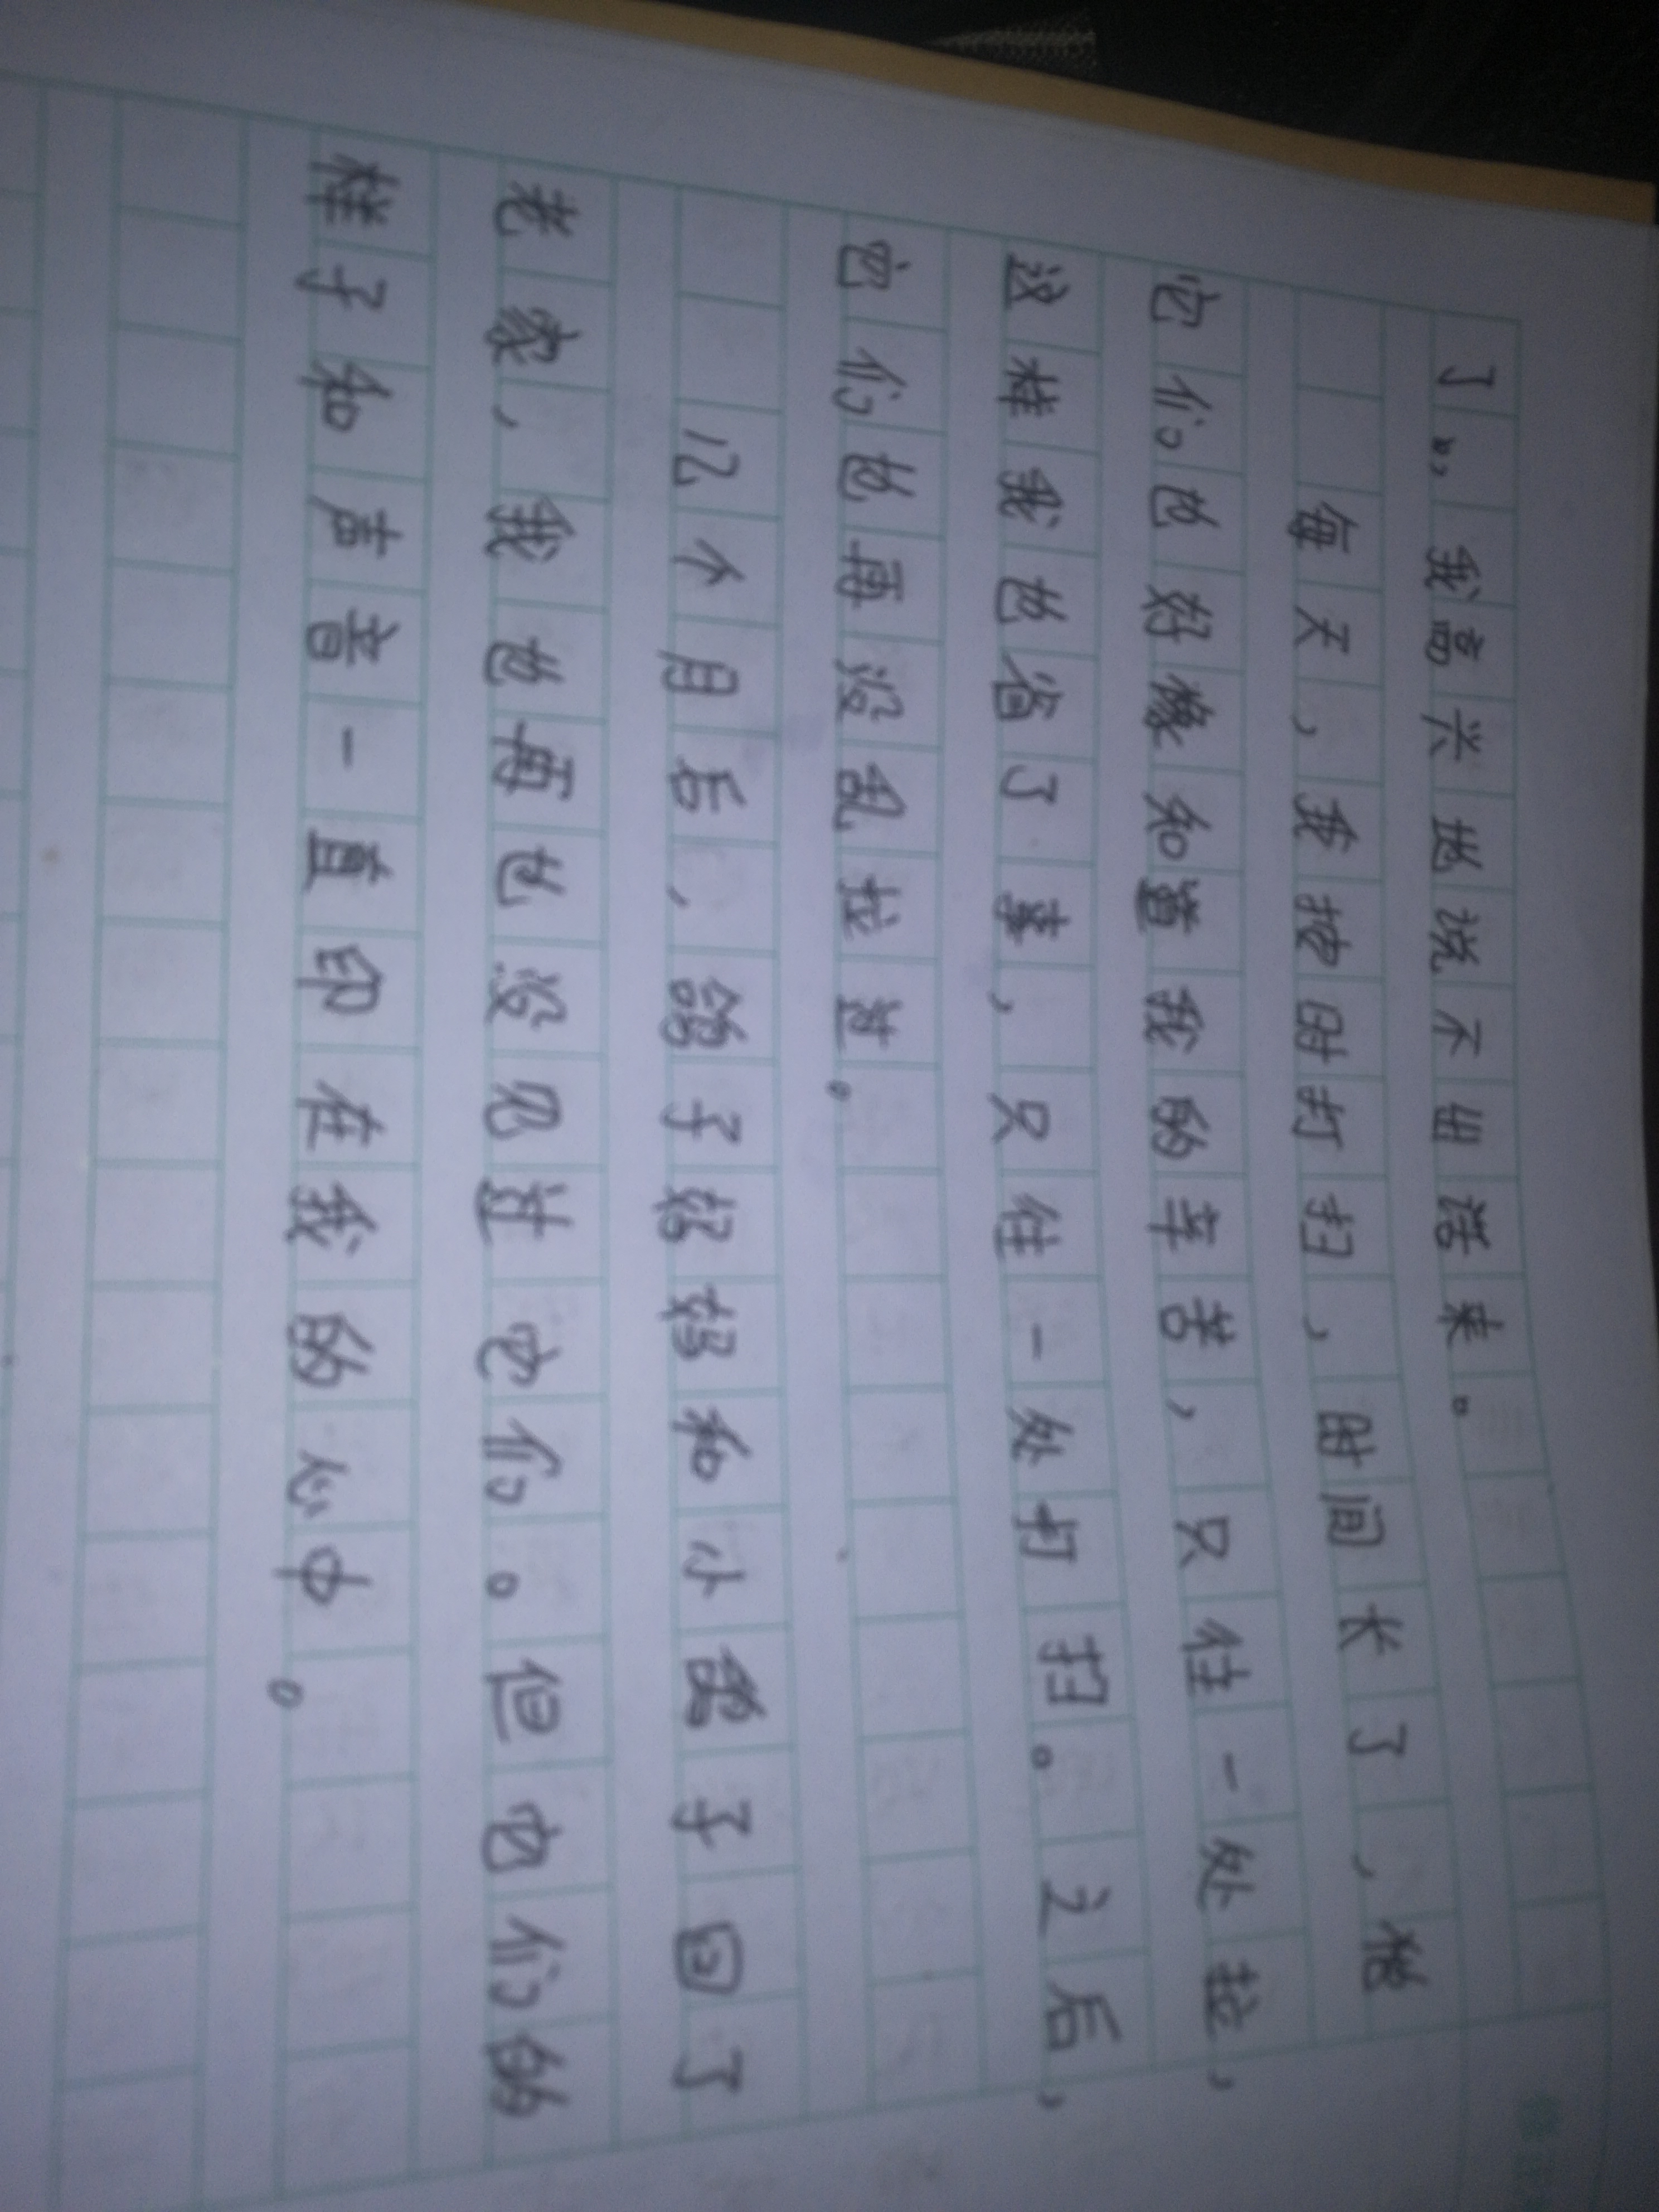 了”，我高兴地说不出话来。
每天，我按时打扫，时间长了，
它们也好像知道我的辛苦，只往一处拉，
这样我也省了事，只往一处打扫。之后，
它们也再没乱拉过。
几个月后，鸽子妈妈和小鸽子回了
老家，我也再也没见过它们。但它们的
样子和声音一直印在我的心中。